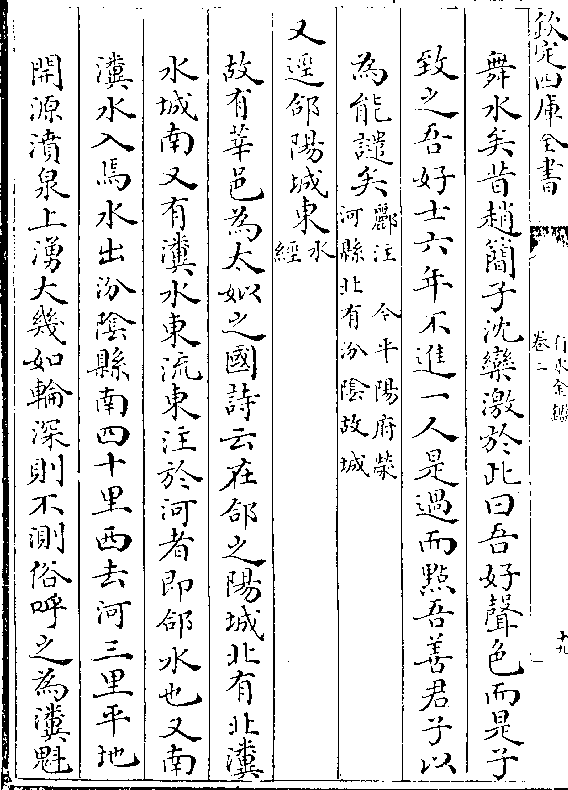 欽定四庫全書
行水金鑑
卷二
十九
舞水矣昔趙簡子沈欒激於此曰吾好聲色而是子
致之吾好士六年不進一人是過而黜吾善君子以
為能譴矣酈注 今平陽府榮
河縣北有汾陰故城
又逕郃陽城東水
經
故有莘邑為太姒之國詩云在郃之陽城北有北瀵
水城南又有瀵水東流東注於河者即郃水也又南
瀵水入焉水出汾陰縣南四十里西去河三里平地
開源濆泉上湧大幾如輪深則不測俗呼之為瀵魁